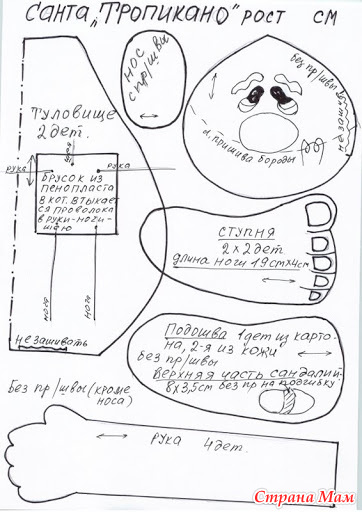 Санта „Тропикано" рост см
нос
с пр/швы
без пр/швы
не зашив
л. пришива бороды
туловище
2 дет.
шея
рука
рука
брусок из
пенопласта
в кот. втыкает
ся проволока
в руки-ноги-
шею
нога
нога
не зашивать
ступня
2×2 дет
длина ноги 19 см×4 см
Подошва 1 дет из карто-
на, 2-я из кожи
без пр/швы
верхняя часть сандалий-
8×3,5см без пр на подгибку
Без пр/швы (кроме
носа)
рука 4 дет.
Страна Мам